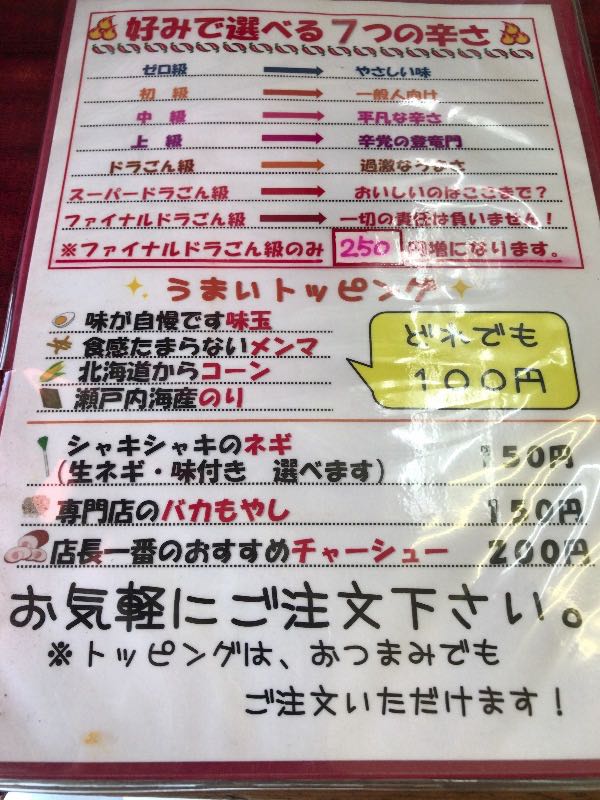 好みで選べる7つの辛さ
ゼロ級 → やさしい味
初 級 → 一般人向け
中 級 → 平凡な辛さ
上 級 → 辛党の登竜門
ドラごん級 → 過激なうまさ
スーパードラごん級 → おいしいのはここまで?
ファイナルドラごん級 → 一切の責任は負いません!
※ファイナルドラごん級のみ 250 円増になります。
うまいトッピング
味が自慢です味玉
食感たまらないメンマ
北海道からコーン
瀬戸内海産のり
どれでも
100円
シャキシャキのネギ
(生ネギ・味付き 選べます) 150円
専門店のバカもやし 150円
店長一番のおすすめチャーシュー 200円
お気軽にご注文下さい。
※トッピングは、おつまみでも
ご注文いただけます!